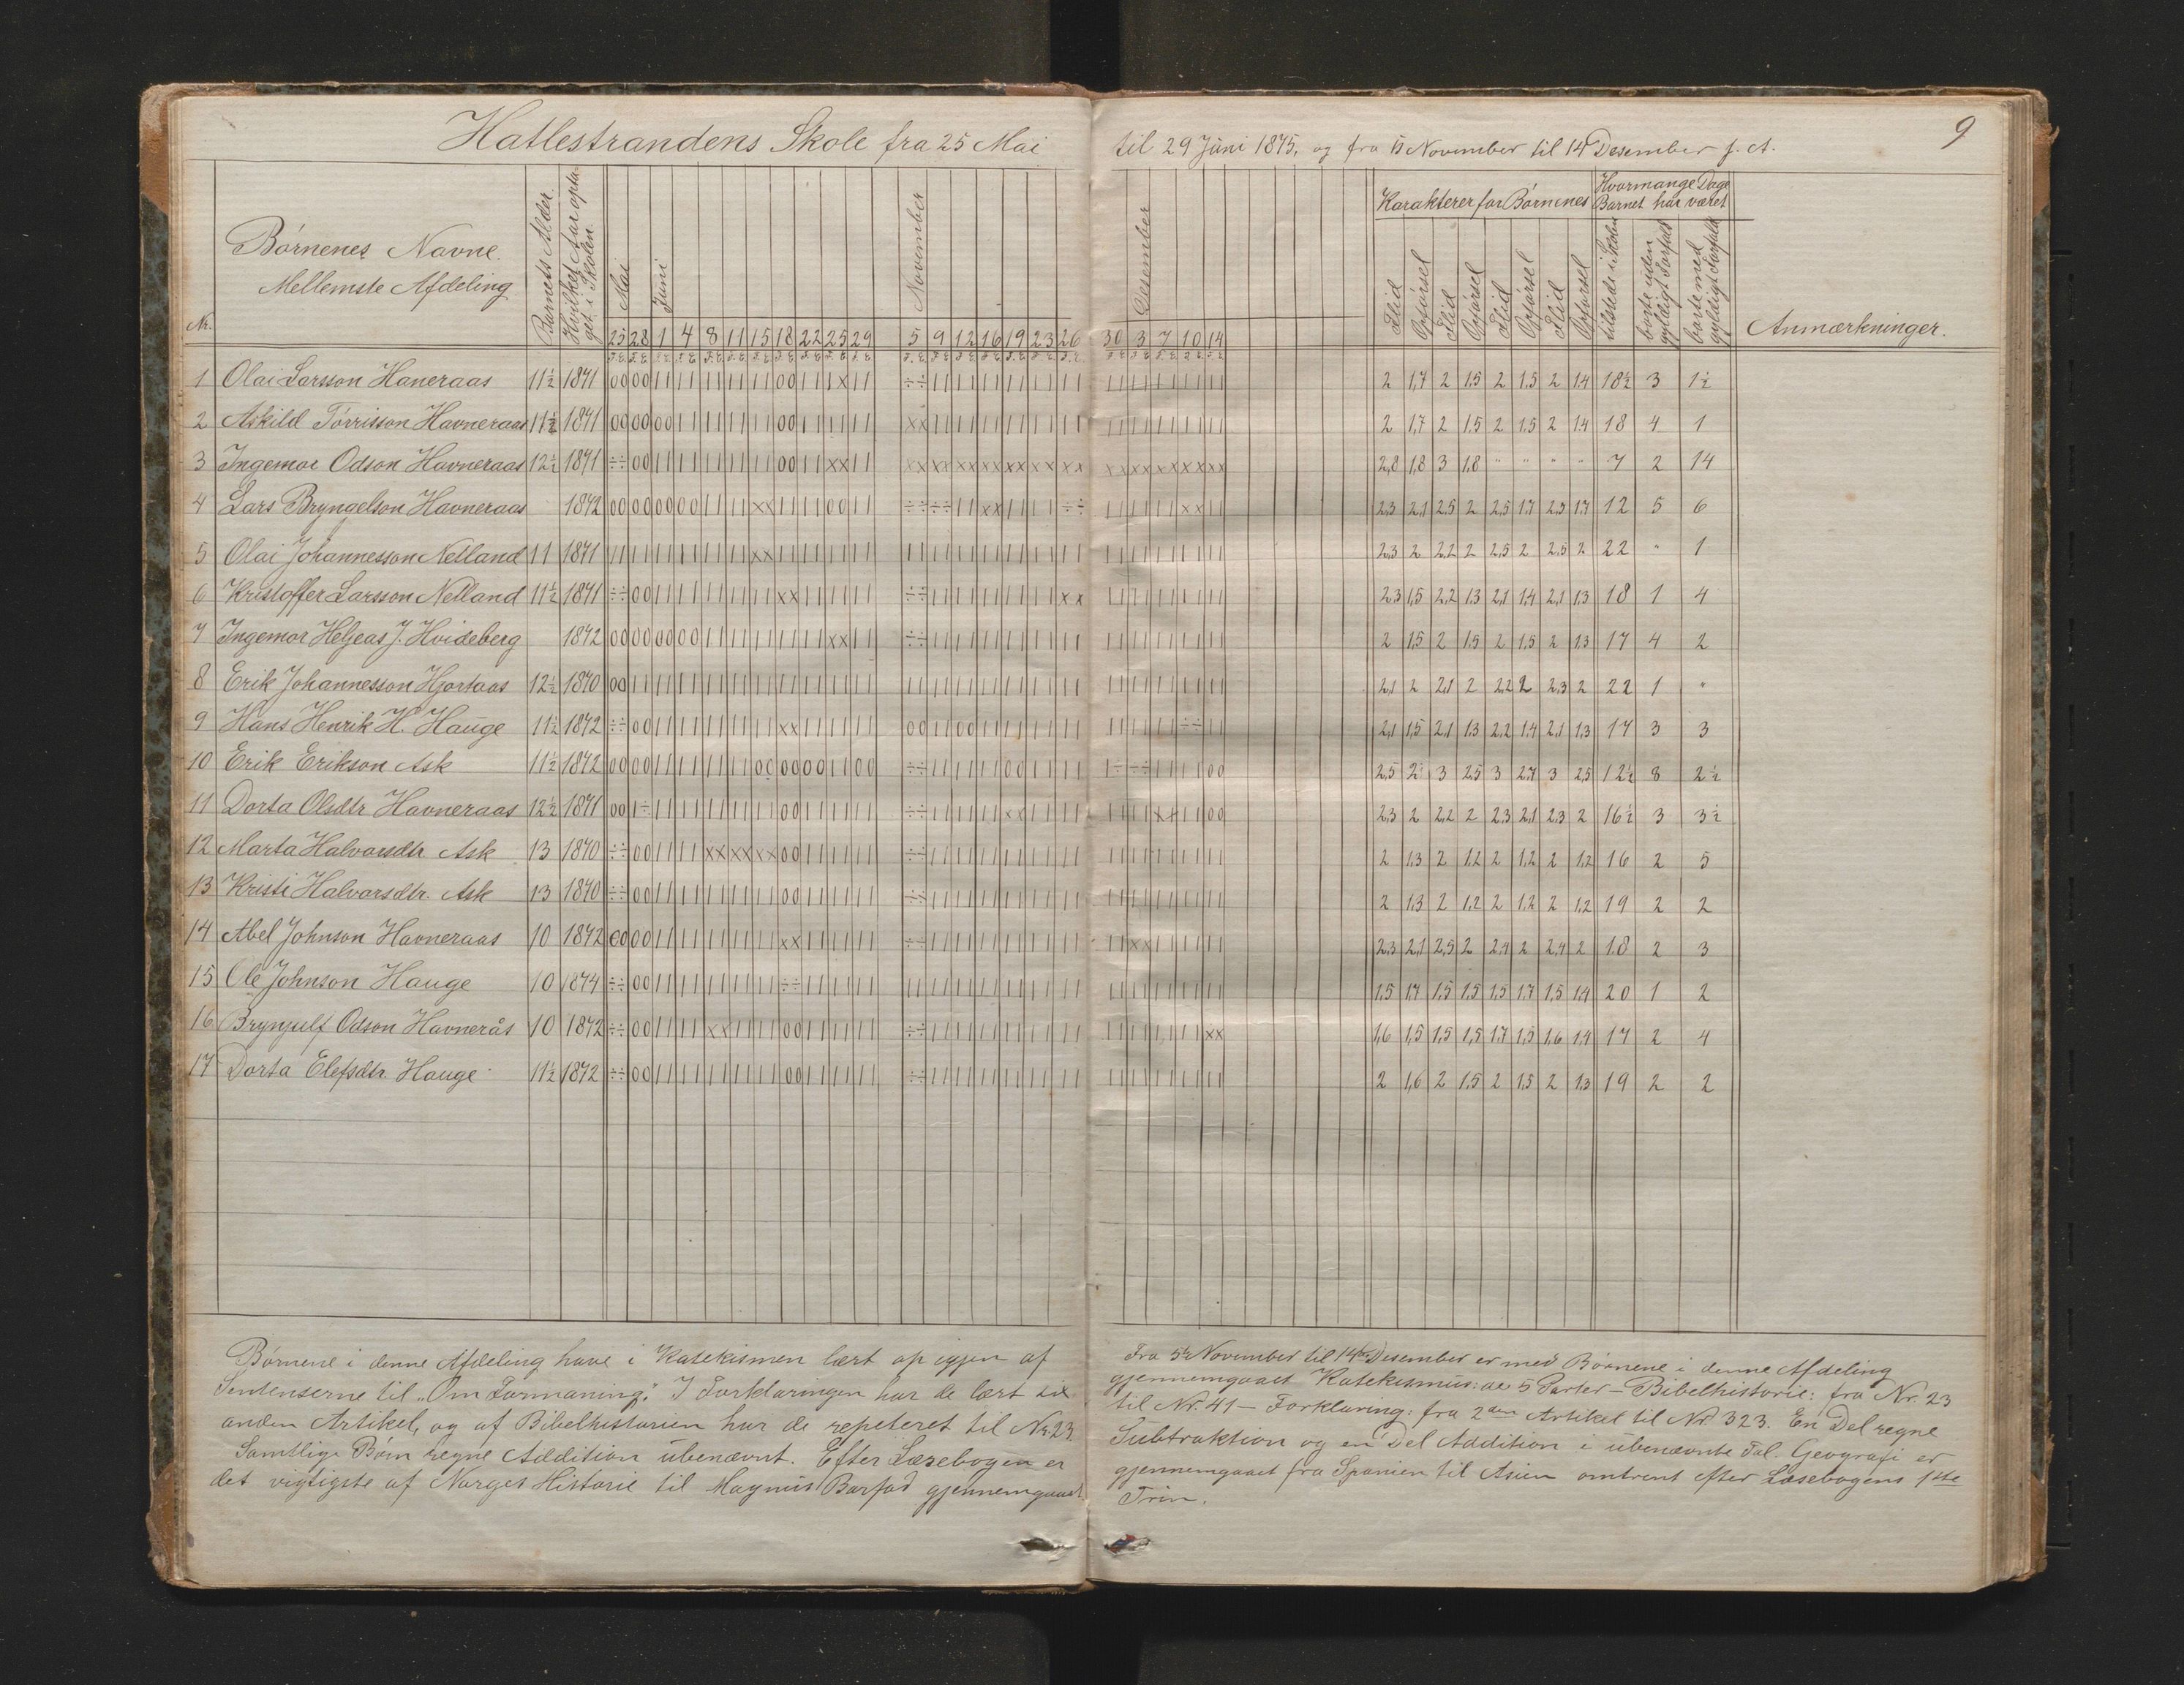 Hatlestrandens Skole fra 25 Mai til 29 Juni 1875, og fra 5 November til 14 Desember s. A.
9
Nr.
Børnenes Navne.
Mellemste Afdeling
Barnets Alder.
Hvilket Aar opta-
get i Skolen.
Mai
Juni
November
Desember
Karakterer for Børnenes
Flid Opførsel Flid Opførsel Flid Opførsel Flid Opførsel
Hvormange Dage
Barnet har været
tilstede i Skolen
borte uden
gyldigt Forfald
borte med
gyldigt Forfald
Anmærkninger.
25 28 1 4 8 11 15 18 22 25 29 5 9 12 16 19 23 26 30 3 7 10 14
1 Olai Larsson Haneraas 11½ 1871 2 1,7 2 1,5 2 1,5 2 1,4 18½ 3 1½
2 Askild Tørrisson Havneraas 11½ 1871 2 1,7 2 1,5 2 1,5 2 1,4 18 4 1
3 Ingemor Odson Havneraas 12½ 1871 2,8 1,8 3 1,8 " " " " 7 2 14
4 Lars Bryngelson Havneraas 1872 2,3 2,1 2,5 2 2,5 1,7 2,3 1,7 12 5 6
5 Olai Johannesson Nelland 11 1871 2,3 2 2,2 2 2,5 2 2,5 2 22 " 1
6 Kristoffer Larsson Nelland 11½ 1871 2,3 1,5 2,2 1,3 2,1 1,4 2,1 1,3 18 1 4
7 Ingemor Heljeas J. Hvideberg 1872 2 1,5 2 1,5 2 1,5 2 1,3 17 4 2
8 Erik Johannesson Hjortaas 12½ 1870 2,1 2 2,1 2 2,2 2 2,3 2 22 1 "
9 Hans Henrik H. Hauge 11½ 1872 2,1 1,5 2,1 1,3 2,2 1,4 2,1 1,3 17 3 3
10 Erik Erikson Ask 11½ 1872 2,5 2 3 2,5 3 2,7 3 2,5 12½ 8 2½
11 Dorta Olsdtr Havneraas 12½ 1871 2,3 2 2,2 2 2,3 2,1 2,3 2 16½ 3 3½
12 Marta Halvorsdtr. Ask 13 1870 2 1,3 2 1,2 2 1,2 2 1,2 16 2 5
13 Kristi Halvorsdtr. Ask 13 1870 2 1,3 2 1,2 2 1,2 2 1,2 19 2 2
14 Abel Johnson Havneraas 10 1872 2,3 2,1 2,5 2 2,4 2 2,4 2 18 2 3
15 Ole Johnson Hauge 10 1874 1,5 1,7 1,5 1,5 1,5 1,7 1,5 1,4 20 1 2
16 Brynjulf Odson Havnerås 10 1872 1,6 1,5 1,5 1,5 1,7 1,5 1,6 1,4 17 2 4
17 Dorta Elefsdtr. Hauge 11½ 1872 2 1,6 2 1,5 2 1,5 2 1,3 19 2 2
Børnene i denne Afdeling have i Katekismen lært op igjen af
Sentenserne til „Om Formaning". I Forklaringen har de lært til
anden Artikel, og af Bibelhistorien har de repeteret til Nr. 23.
Samtlige Børn regne Addition ubenævnt. Efter Læsebogen er
det vigtigste af Norges Historie til Magnus Barfod gjennemgaaet
Fra 5te November til 14de Desember er med Børnene i denne Afdeling
gjennemgaaet Katekismus: de 5 Parter – Bibelhistorie: fra Nr. 23
til Nr. 41 – Forklaring: fra 2den Artikel til Nr 323. En Del regne
Subtraktion og en Del Addition i ubenævnte Tal. Geografi er
gjennemgaaet fra Spanien til Asien omtrent efter Læsebogens 1ste
Trin.